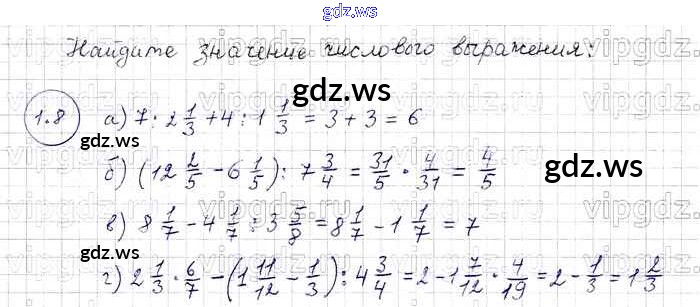 gdz.ws
Найдите значение числового выражения:
gdz.ws
1.8 а) 7 : 2 1/3 + 4 : 1 1/3 = 3 + 3 = 6
gdz.ws
б) (12 2/5 - 6 1/5) : 7 3/4 = 31/5 · 4/31 = 4/5
в) 8 1/7 - 4 1/7 : 3 5/8 = 8 1/7 - 1 1/7 = 7
gdz.ws gdz.ws
г) 2 1/3 · 6/7 - (1 11/12 - 1/3) : 4 3/4 = 2 - 1 7/12 · 4/19 = 2 - 1/3 = 1 2/3
gdz.ws